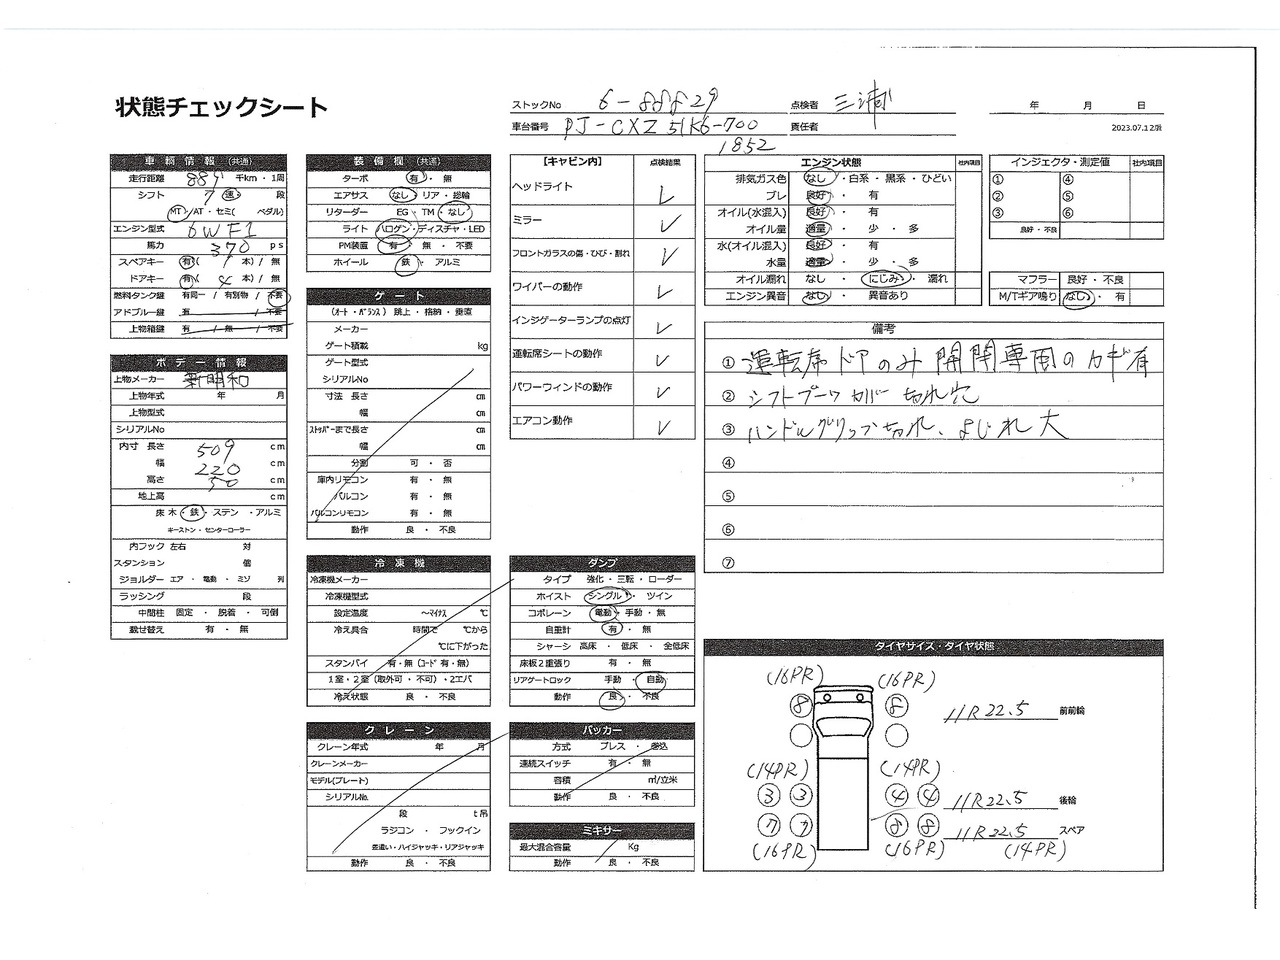 状態チェックシート
ストックNo 6-88829 点検者 三浦 年 月 日
車台番号 PJ-CXZ51K6-7001852 責任者 2023.07.12版
車輌情報(共通)
走行距離 889 千km・1周
シフト 7 速 段
MT/AT・セミ( ペダル)
エンジン型式 6WF1
馬力 370 ps
スペアキー 有( 1 本) / 無
ドアキー 有( 4 本) / 無
燃料タンク鍵 有同一 / 有別物 / 不要
アドブルー鍵 有 / 不要
上物箱鍵 有 / 無 / 不要
ボデー情報
上物メーカー 新明和
上物年式 年 月
上物型式
シリアルNo
内寸 長さ 509 cm
幅 220 cm
高さ 50 cm
地上高 cm
床 木・鉄・ステン・アルミ
キーストン・センターローラー
内フック 左右 対
スタンション 個
ジョルダー エア・電動・ミゾ 列
ラッシング 段
中間柱 固定・脱着・可倒
載せ替え 有・無
装備欄(共通)
ターボ 有・無
エアサス なし・リア・総輪
リターダー EG・TM・なし
ライト ハロゲン・ディスチャ・LED
PM装置 有・無・不要
ホイール 鉄・アルミ
ゲート
(オート・バランス) 跳上・格納・垂直
メーカー
ゲート積載 kg
ゲート型式
シリアルNo
寸法 長さ cm
幅 cm
ストッパーまで長さ cm
幅 cm
分割 可・否
庫内リモコン 有・無
バルコン 有・無
バルコンリモコン 有・無
動作 良・不良
冷凍機
冷凍機メーカー
冷凍機型式
設定温度 ～マイナス ℃
冷え具合 時間で ℃から
℃に下がった
スタンバイ 有・無(コード 有・無)
1室・2室(取外可・不可)・2エバ
冷え状態 良・不良
クレーン
クレーン年式 年 月
クレーンメーカー
モデル(プレート)
シリアルNo.
段 t吊
ラジコン・フックイン
差違い・ハイジャッキ・リアジャッキ
動作 良・不良
【キャビン内】 点検結果
ヘッドライト ✓
ミラー ✓
フロントガラスの傷・ひび・割れ ✓
ワイパーの動作 ✓
インジゲーターランプの点灯 ✓
運転席シートの動作 ✓
パワーウィンドの動作 ✓
エアコン動作 ✓
ダンプ
タイプ 強化・三転・ローダー
ホイスト シングル・ツイン
コボレーン 電動・手動・無
自重計 有・無
シャーシ 高床・低床・全低床
床板2重張り 有・無
リアゲートロック 手動・自動
動作 良・不良
パッカー
方式 プレス・巻込
連続スイッチ 有・無
容積 ㎥/立米
動作 良・不良
ミキサー
最大混合容量 Kg
動作 良・不良
エンジン状態 社内項目
排気ガス色 なし・白系・黒系・ひどい
ブレ 良好・有
オイル(水混入) 良好・有
オイル量 適量・少・多
水(オイル混入) 良好・有
水量 適量・少・多
オイル漏れ なし・にじみ・漏れ
エンジン異音 なし・異音あり
インジェクタ・測定値 社内項目
① ④
② ⑤
③ ⑥
良好・不良
マフラー 良好・不良
M/Tギア鳴り なし・有
備考
① 運転席ドアのみ開閉専用のカギ有
② シフトブーツカバー 切れ穴
③ ハンドルグリップ切れ、よじれ大
④
⑤
⑥
⑦
タイヤサイズ・タイヤ状態
(16PR) (16PR)
8 8 11R22.5 前前輪
(14PR) (14PR)
3 3 4 4 11R22.5 後輪
7 7 8 8 11R22.5 スペア
(16PR) (16PR) (14PR)